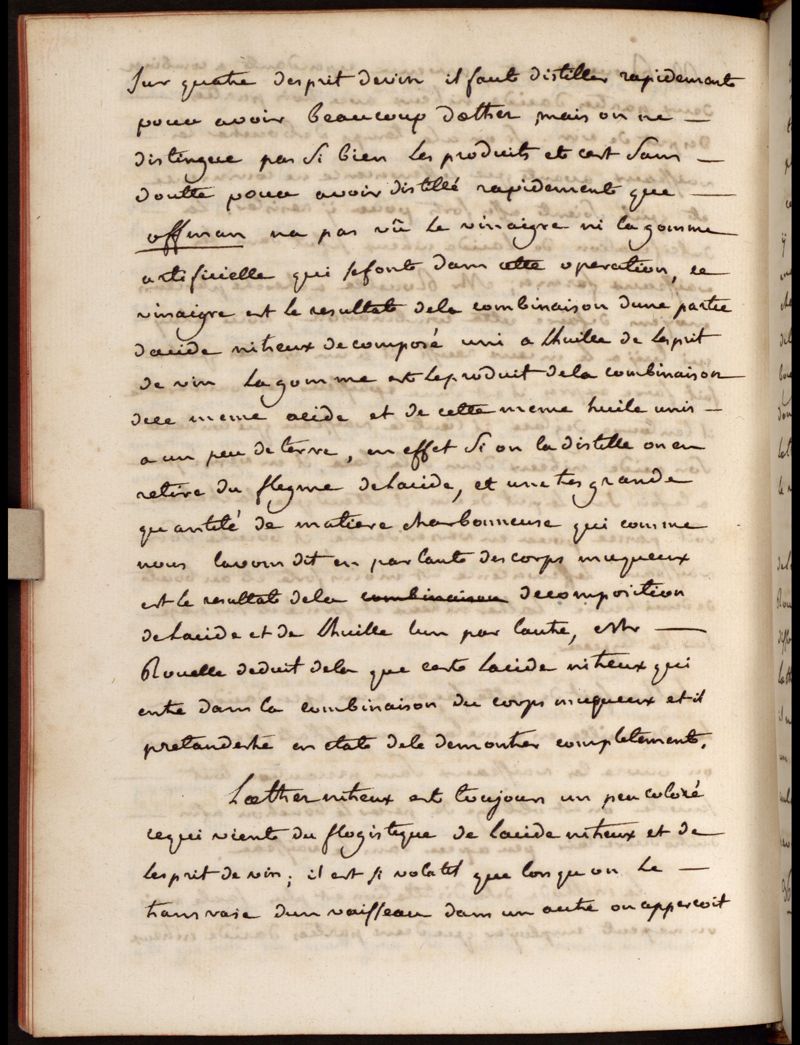 Sur quatre desprit devin il faut distiller rapidement
pour avoir beaucoup dœther, mais on ne —
distingue pas si bien les produits et cest sans —
doutte pour avoir distillé rapidement que —
offman na pas vû le vinaigre ni la gomme
artificielle qui se font dans cette operation, ce
vinaigre est le resultat dela combinaison dune partie
dacide nitreux decomposé uni a lhuille de lesprit
de vin la gomme est le produit de la combinaison
dece meme acide et de cette meme huile unis —
a un peu de terre, en effet si on la distille on en
retire du flegme de lacide, et une tres grande
quantité de matiere charbonneuse qui comme
nous lavons dit en parlant des corps muqueux
est le resultat dela combinaison decomposition
de lacide et de lhuille lun par lautre, Mr —
Rouelle deduit dela que cest lacide nitreux qui
entre dans la combinaison du corps muqueux et il
pretend etre en etat dele demontrer completement.
Lœther nitreux est toujours un peu coloré
cequi vient du flogistique de lacide nitreux et de
lesprit de vin; il est si volatil que lorsquon le —
transvase dun vaisseau dans un autre on appercoit